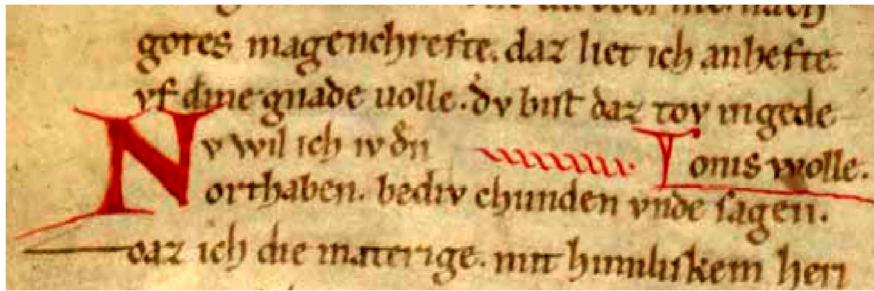 gotes magenchrefte. daz liet ich anhefte.
vf dine gnade uolle. dv bist daz tov in gede
onis wolle.
Nv wil ich iv din
orthaben. bediv chunden vnde sagen.
daz ich die materige. mit himiliskem heri